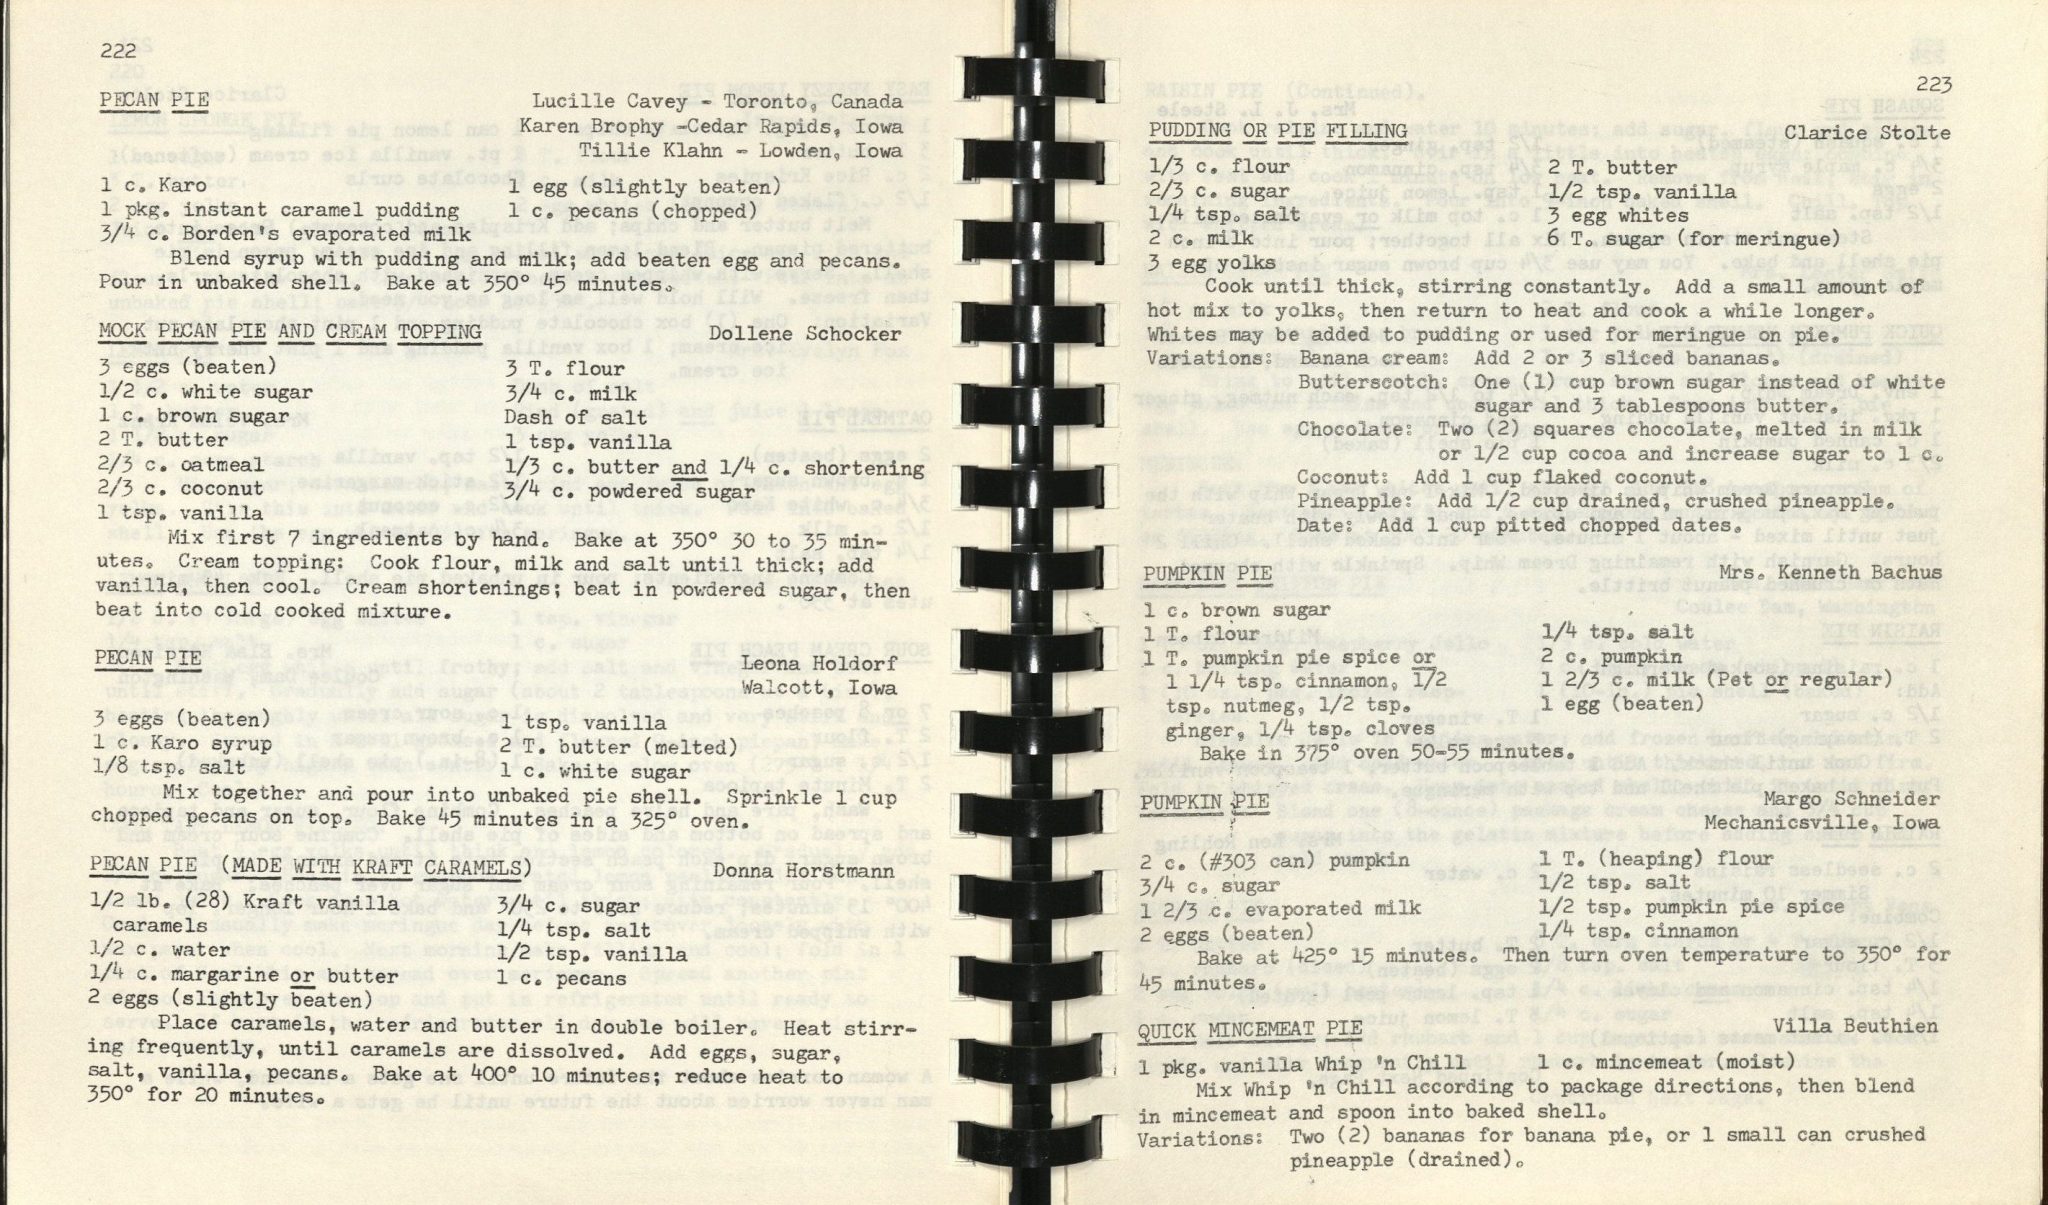 222
PECAN PIE Lucille Cavey - Toronto, Canada
Karen Brophy -Cedar Rapids, Iowa
Tillie Klahn - Lowden, Iowa
1 c. Karo 1 egg (slightly beaten)
1 pkg. instant caramel pudding 1 c. pecans (chopped)
3/4 c. Borden's evaporated milk
Blend syrup with pudding and milk; add beaten egg and pecans.
Pour in unbaked shell. Bake at 350° 45 minutes.
MOCK PECAN PIE AND CREAM TOPPING Dollene Schocker
3 eggs (beaten) 3 T. flour
1/2 c. white sugar 3/4 c. milk
1 c. brown sugar Dash of salt
2 T. butter 1 tsp. vanilla
2/3 c. oatmeal 1/3 c. butter and 1/4 c. shortening
2/3 c. coconut 3/4 c. powdered sugar
1 tsp. vanilla
Mix first 7 ingredients by hand. Bake at 350° 30 to 35 min-
utes. Cream topping: Cook flour, milk and salt until thick; add
vanilla, then cool. Cream shortenings; beat in powdered sugar, then
beat into cold cooked mixture.
PECAN PIE Leona Holdorf
Walcott, Iowa
3 eggs (beaten) 1 tsp. vanilla
1 c. Karo syrup 2 T. butter (melted)
1/8 tsp. salt 1 c. white sugar
Mix together and pour into unbaked pie shell. Sprinkle 1 cup
chopped pecans on top. Bake 45 minutes in a 325° oven.
PECAN PIE (MADE WITH KRAFT CARAMELS) Donna Horstmann
1/2 lb. (28) Kraft vanilla 3/4 c. sugar
caramels 1/4 tsp. salt
1/2 c. water 1/2 tsp. vanilla
1/4 c. margarine or butter 1 c. pecans
2 eggs (slightly beaten)
Place caramels, water and butter in double boiler. Heat stirr-
ing frequently, until caramels are dissolved. Add eggs, sugar,
salt, vanilla, pecans. Bake at 400° 10 minutes; reduce heat to
350° for 20 minutes.
223
PUDDING OR PIE FILLING Clarice Stolte
1/3 c. flour 2 T. butter
2/3 c. sugar 1/2 tsp. vanilla
1/4 tsp. salt 3 egg whites
2 c. milk 6 T. sugar (for meringue)
3 egg yolks
Cook until thick, stirring constantly. Add a small amount of
hot mix to yolks, then return to heat and cook a while longer.
Whites may be added to pudding or used for meringue on pie.
Variations: Banana cream: Add 2 or 3 sliced bananas.
Butterscotch: One (1) cup brown sugar instead of white
sugar and 3 tablespoons butter.
Chocolate: Two (2) squares chocolate, melted in milk
or 1/2 cup cocoa and increase sugar to 1 c.
Coconut: Add 1 cup flaked coconut.
Pineapple: Add 1/2 cup drained, crushed pineapple.
Date: Add 1 cup pitted chopped dates.
PUMPKIN PIE Mrs. Kenneth Bachus
1 c. brown sugar
1 T. flour 1/4 tsp. salt
1 T. pumpkin pie spice or 2 c. pumpkin
1 1/4 tsp. cinnamon, 1/2 1 2/3 c. milk (Pet or regular)
tsp. nutmeg, 1/2 tsp. 1 egg (beaten)
ginger, 1/4 tsp. cloves
Bake in 375° oven 50-55 minutes.
PUMPKIN PIE Margo Schneider
Mechanicsville, Iowa
2 c. (#303 can) pumpkin 1 T. (heaping) flour
3/4 c. sugar 1/2 tsp. salt
1 2/3 c. evaporated milk 1/2 tsp. pumpkin pie spice
2 eggs (beaten) 1/4 tsp. cinnamon
Bake at 425° 15 minutes. Then turn oven temperature to 350° for
45 minutes.
QUICK MINCEMEAT PIE Villa Beuthien
1 pkg. vanilla Whip 'n Chill 1 c. mincemeat (moist)
Mix Whip 'n Chill according to package directions, then blend
in mincemeat and spoon into baked shell.
Variations: Two (2) bananas for banana pie, or 1 small can crushed
pineapple (drained).